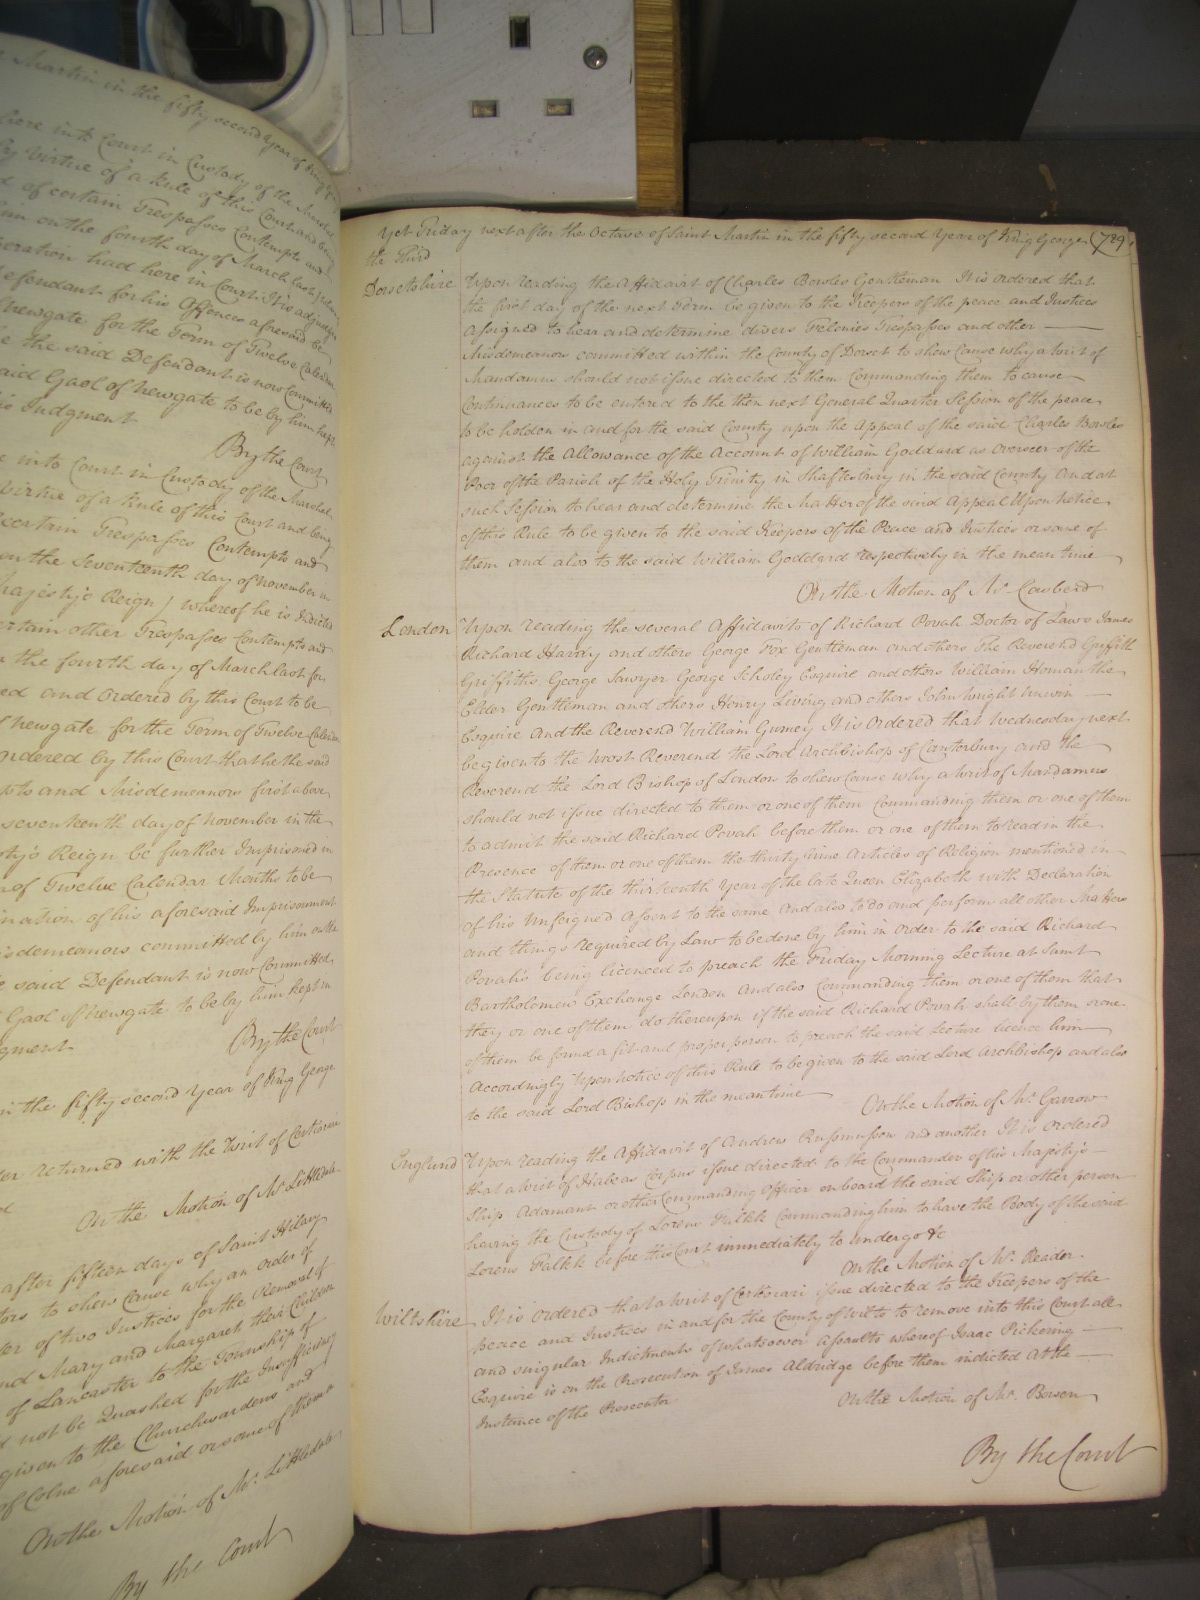 Martin in the fifty second Year of King
here into Court in Custody of the Marshal
by Virtue of a Rule of this Court and being
of certain Trespasses Contempts and
on the fourth day of March last
peration had here in Court It is adjudged
Defendant for his Offences aforesaid be
Newgate for the Term of Twelve Calendar
the said Defendant is now Committed
said Gaol of Newgate to be by him kept
Judgment
By the Court
into Court in Custody of the Marshal
Virtue of a Rule of this Court and being
certain Trespasses Contempts and
on the Seventeenth day of November in
Majesty's Reign / Whereof he is Indicted
certain other Trespasses Contempts and
the fourth day of March last for
ed and Ordered by this Court to be
Newgate for the Term of Twelve Calendar
ordered by this Court that he the said
pts and Misdemeanors first above
seventeenth day of November in the
sty's Reign be further Imprisoned in
of Twelve Calendar Months to be
ination of his aforesaid Imprisonment
isdemeanors committed by him on the
said Defendant is now Committed
Gaol of Newgate to be by him kept in
gment
By the Court
in the fifty second Year of King George
returned with the Writ of Certiorari
On the Motion of Mr. Littledale
after fifteen days of Saint Hilary
tors to shew Cause why an order of
of two Justices for the Removal of
Mary and Margaret their Children
of Lancaster to the Township of
not be Quashed for the Insufficiency
given to the Churchwardens and
of Colne aforesaid or some of them
On the Motion of Mr. Littledale
By the Court
Yet Friday next after the Octave of Saint Martin in the fifty second Year of King George 729
the Third
Dorsetshire Upon reading the Affidavit of Charles Bowles Gentleman It is ordered that
the first day of the next Term be given to the Keepers of the peace and Justices
assigned to hear and determine divers Felonies Trespasses and other
Misdemeanors committed within the County of Dorset to shew Cause why a Writ of
Mandamus should not issue directed to them Commanding them to cause
Continuances to be entered to the then next General Quarter Session of the peace
to be holden in and for the said County upon the Appeal of the said Charles Bowles
against the Allowance of the Account of William Goddard as Overseer of the
Poor of the Parish of the Holy Trinity in Shaftesbury in the said County And at
such Session to hear and determine the Matter of the said Appeal Upon Notice
of this Rule to be given to the said Keepers of the Peace and Justices or some of
them and also to the said William Goddard respectively in the mean time
On the Motion of Mr. Casberd
London Upon reading the several Affidavits of Richard Povah Doctor of Laws James
Richard Hardy and others George Fox Gentleman and others The Reverend Griffith
Griffiths George Sawyer George Scholey Esquire and others William Homan the
Elder Gentleman and others Henry Living and others John Wught Unwin
Esquire And the Reverend William Gurney It is Ordered that Wednesday next
be given to the Most Reverend the Lord Archbishop of Canterbury and the
Reverend the Lord Bishop of London to shew Cause why a Writ of Mandamus
should not issue directed to them or one of them Commanding them or one of them
to admit the said Richard Povah before them or one of them to read in the
Presence of them or one of them the thirty nine Articles of Religion mentioned in
the Statute of the thirteenth Year of the late Queen Elizabeth with Declaration
of his Unfeigned Assent to the same And also to do and perform all other Matters
and things required by Law to be done by him in order to the said Richard
Povah's being licenced to preach the Friday Morning Lecture at Saint
Bartholomew Exchange London And also Commanding them or one of them that
they or one of them do thereupon if the said Richard Povah shall by them or one
of them be found a fit and proper person to preach the said Lecture licence him
Accordingly Upon Notice of this Rule to be given to the said Lord Archbishop and also
to the said Lord Bishop in the mean time
On the Motion of Mr. Garrow
England Upon reading the Affidavit of Andrew Rusmusson and another It is ordered
that a Writ of Habeas Corpus issue directed to the Commander of his Majesty's
Ship Adamant or other Commanding Officer on board the said Ship or other person
having the Custody of Lorens Falkk Commanding him to have the Body of the said
Lorens Falkk before this Court immediately to undergo &c
On the Motion of Mr. Reader
Wiltshire It is ordered that a Writ of Certiorari issue directed to the Keepers of the
peace and Justices in and for the County of Wilts to remove into this Court all
and singular Indictments of whatsoever Assaults whereof Isaac Pickering
Esquire is on the Prosecution of James Aldridge before them indicted At the
Instance of the Prosecutor
On the Motion of Mr. Bowen
By the Court